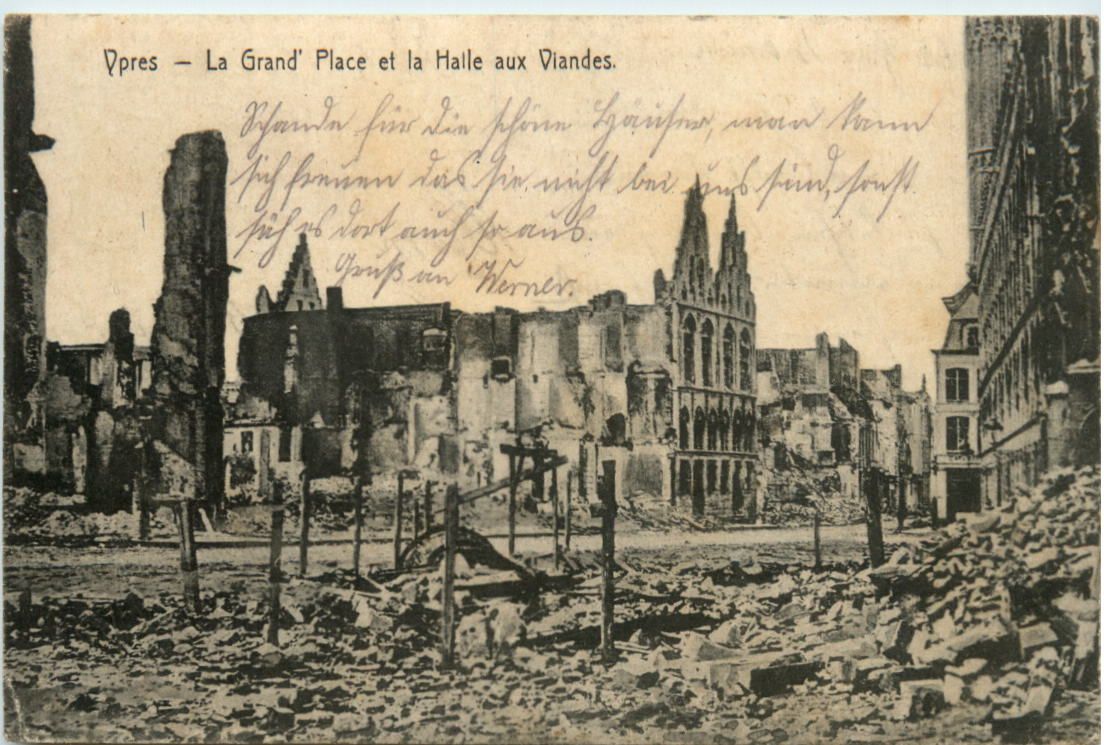 Ypres — La Grand' Place et la Halle aux Viandes.
Schande für die schöne Häuser, man kann
sich freuen das sie nicht bei uns sind, sonst
säh es dort auch so aus.
Gruß an Werner.